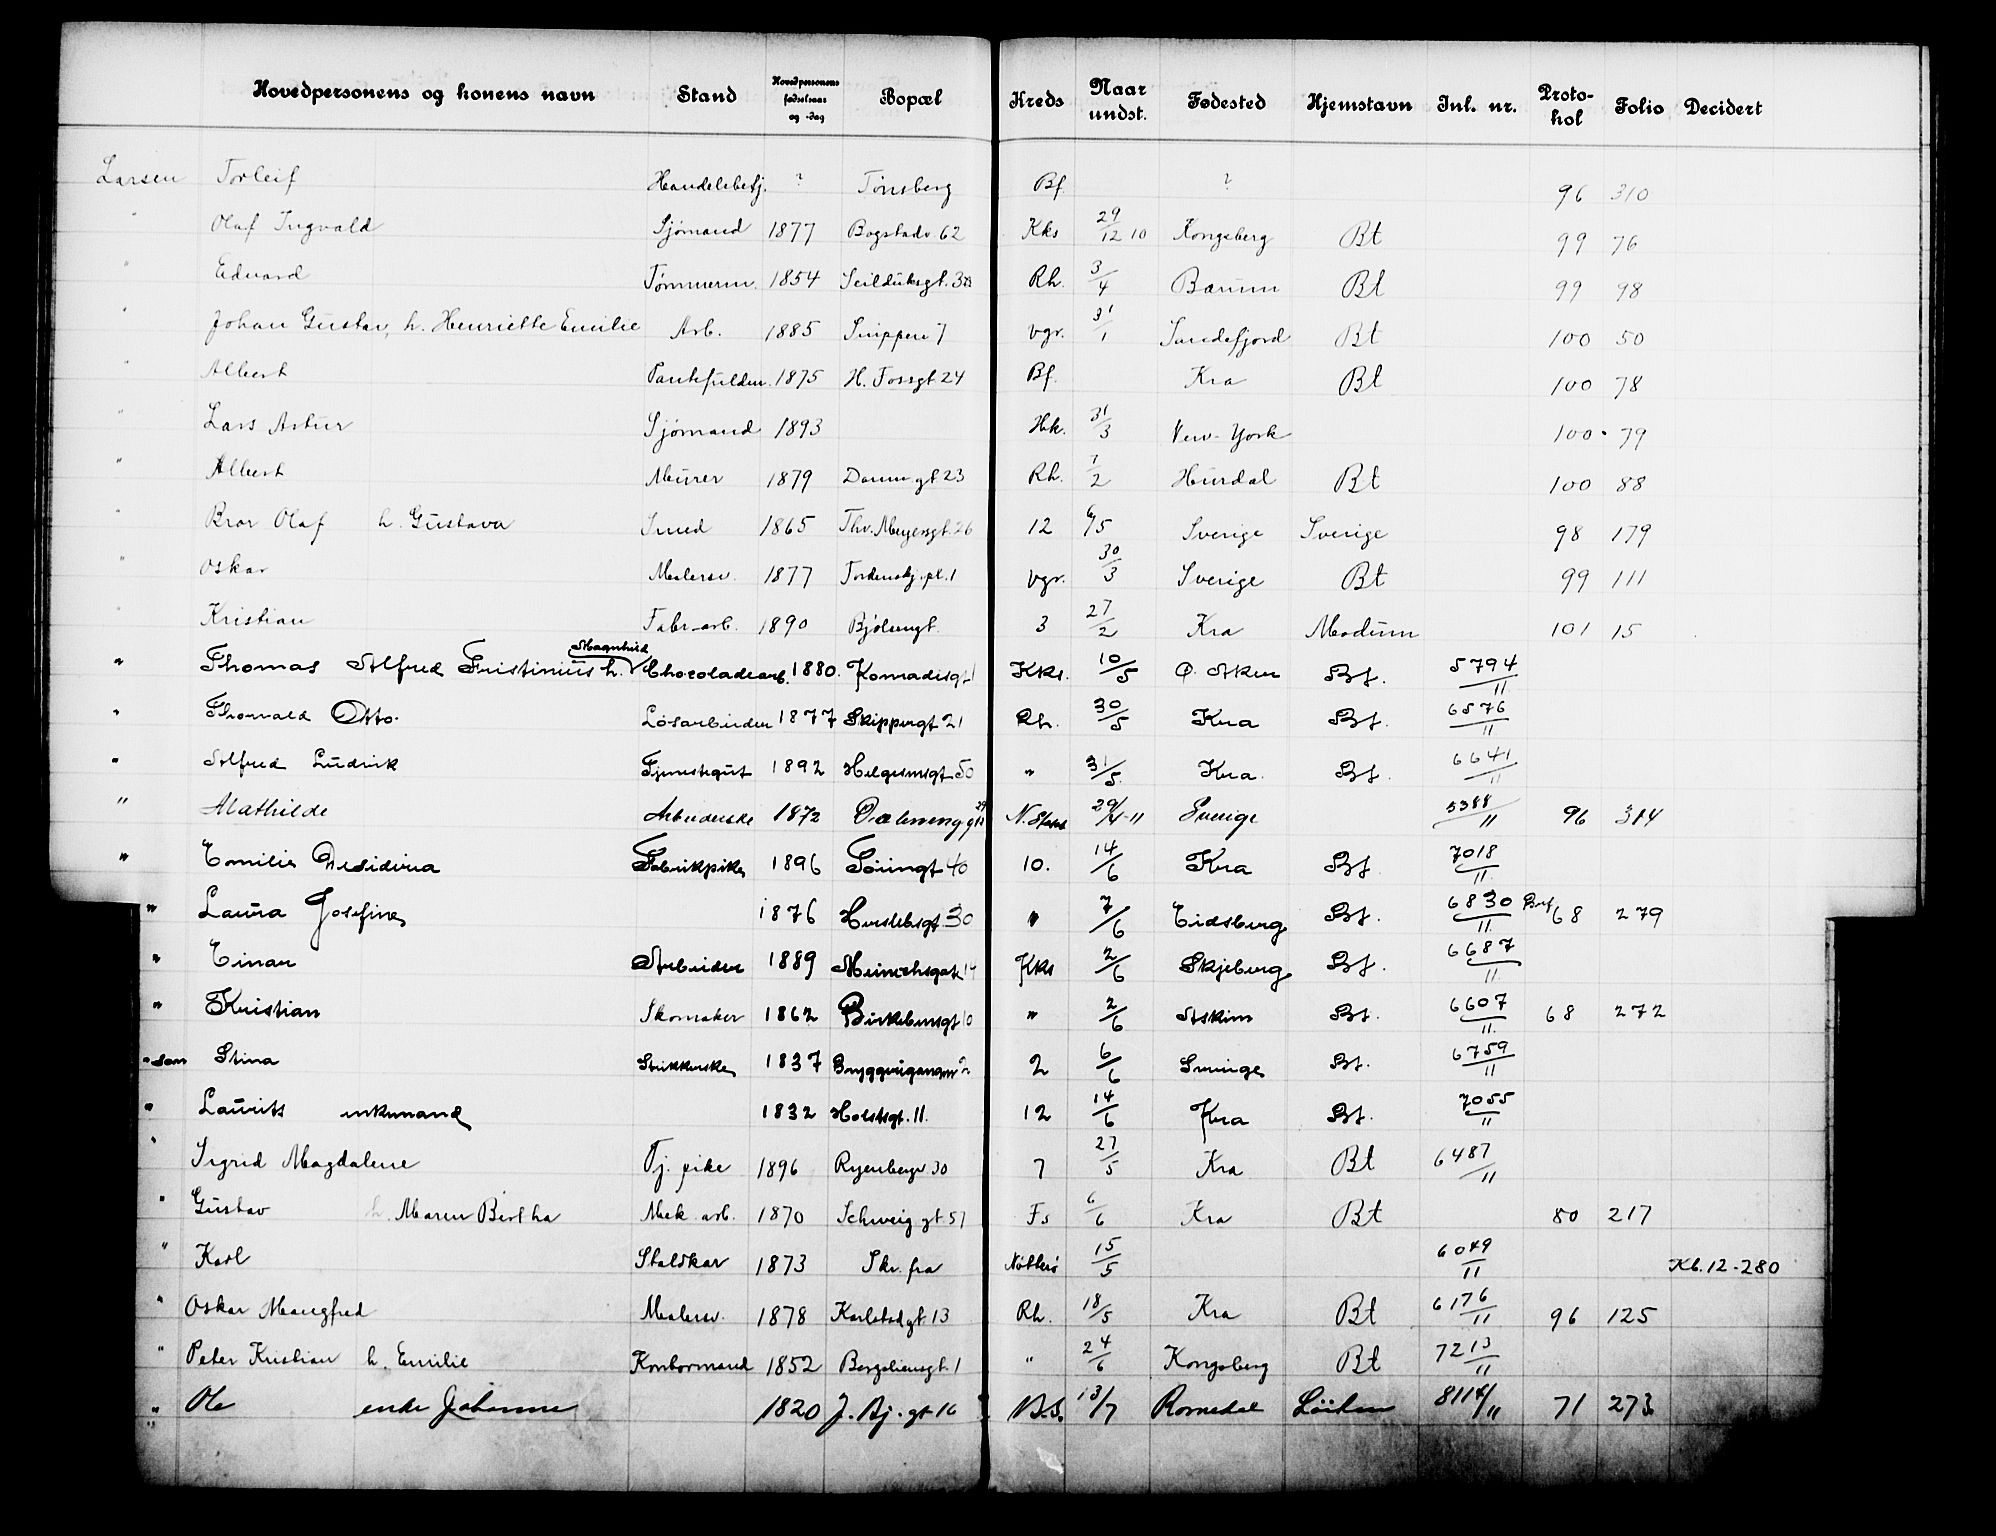 Hovedpersonens og konens navn Stand Hovedpersonens fødselsaar og -dag Bopæl Kreds Naar undst. Fødested Hjemstavn Inl. nr. Protokol Folio Decidert
Larsen Torleif Handelsbetj. ? Tønsberg Bf. ? 96 310
" Olaf Ingvald Sjømand 1877 Bogstadv. 62 Kks 29/12 10 Kongsberg Bt 99 76
" Edvard Tømmerm. 1854 Seilduksgt. Rh. 3/4 Bærum Bt 99 98
" Johan Gustav, h. Henriette Emilie Arb. 1885 Snippen 7 Vgr. 31/1 Sandefjord Bt 100 50
" Albert 1875 H. Fossgt 24 Bf. Kra Bt 100 78
" Lars Artur Sjømand 1893 Hk. 31/3 New-York 100 79
" Albert Murer 1879 gt 23 Rh. 1/2 Hurdal Bt 100 88
" Bror Olaf h. Gustava Smed 1865 Thv. Meyersgt. 26 12 6/5 Sverige Sverige 98 179
" Oskar Malersv. 1877 Tordenskj. pl. 1 Vgr. 30/3 Sverige Bt 99 111
" Kristian Fabr-arb. 1890 Bjølsengt. 3 27/2 Kra Modum 101 15
Magnhild
" Thomas Alfred Fristinius h. Chocoladearb. 1880. Komadisgt 1 Kks. 10/5 Ø. Aker Bt. 5794/11
" Thorvald Otto. Løsarbeider 1877 Skippergt 21 Rh. 30/5 Kra Bt. 6576/11
" Alfred Ludvik Tjenestegut 1892 Helgesensgt 50 " 31/5 Kra. Bt. 6641/11
" Mathilde Arbeiderske 1872 Dælenenggt 29 N. 29/4-11 Sverige 5388/11 96 314
" Emilie Desideria Fabrikpike 1896 40 10. 14/6 Kra Bt. 7018/11
" Laura Josefine 1876 Herslebsgt. 30 " 7/6 Eidsberg Bt. 6830/11 68 279
" Einar Arbeider 1889 Munchsgate 14 Kks 2/6 Skjeberg Bt. 6687/11
" Kristian Skomaker 1862 Birkebeinsgt 10 " 2/6 Askim Bt. 6607/11 68 272
" sen Stina Strikkerske 1837 Bryggerigangen 2 2 6/6 Sverige Bt. 6759/11
" Laurits enkemand 1832 Holstsgt. 11. 12 14/6 Kra Bt. 7055/11
" Sigrid Magdalene Tj. pike 1896 Ryenbergv. 30 7 27/5 Kra Bt 6487/11
" Gustav h. Maren Bertha Mek. arb. 1870 Schweig gt. 51 Fs 6/6 Kra Bt 80 217
" Karl Staldkar 1873 Skr. fra Nøtterø 15/5 6049/11 Kb. 12-280
" Oskar Mangfred Malersv. 1878 Karlstadgt. 13 Rh. 18/5 Kra Bt 6176/11 96 125
" Peter Kristian h. Emilie Kontormand 1852 Bergsliensgt. 1 " 24/6 Kongsberg Bt 7213/11
" Ole enke Johanne 1820 J. Bj. gt 16 B.S. 13/7 Romedal Løiten 8114/11 71 273